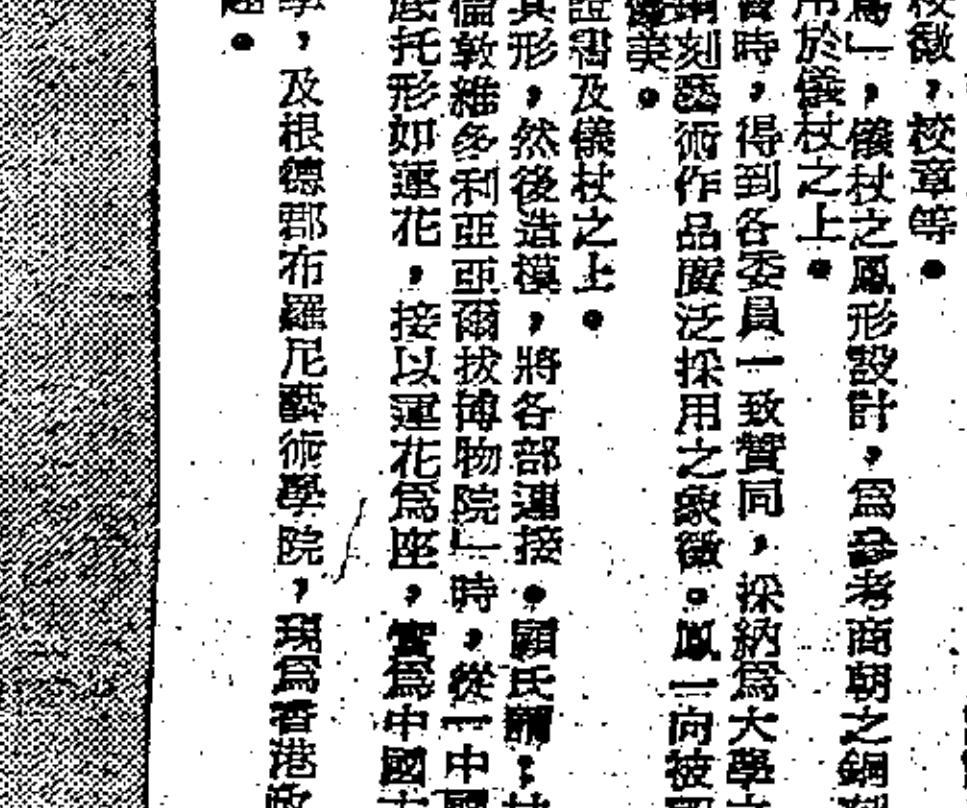 校徽，校章等。
」，儀杖之鳳形設計，爲參考商朝之銅
用於儀杖之上。
時，得到各委員一致贊同，採納爲大學
銅刻藝術作品廣泛採用之象徵。鳳一向被
優美。
證書及儀杖之上。
其形，然後造模，將各部連接。顧氏謂：
倫敦維多利亞亞爾拔博物院」時，從一中國
底托形如蓮花，接以蓮花爲座，實爲中國
學，及根德郡布羅尼藝術學院，現爲香港政
。